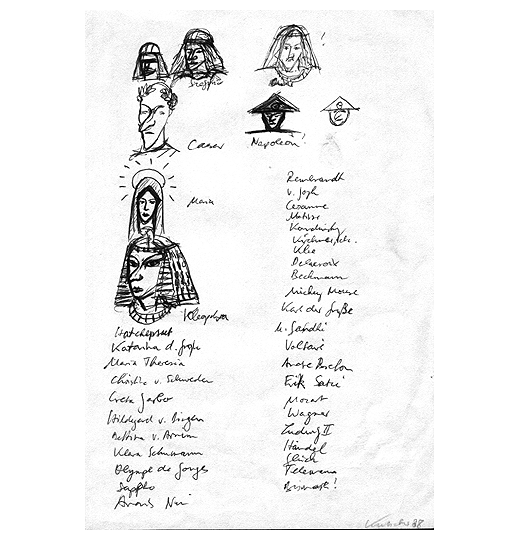 Caesar
Napoleon!
Maria
Kleopatra
Hatschepsut
Katarina d. große
Maria Theresia
Christine v. Schweden
Greta Garbo
Hildegard v. Bingen
Bettina v. Arnim
Klara Schumann
Olympe de Gouges
Sappho
Anais Nin
Rembrandt
v. Gogh
Cezanne
Matisse
Kandinsky
Klee
Delacroix
Beckmann
Mickey Mouse
Karl der Große
M. Gandhi
Voltaire
Erik Satie
Mozart
Wagner
Ludwig II
Händel
Glück
Telemann
Bismark!
88